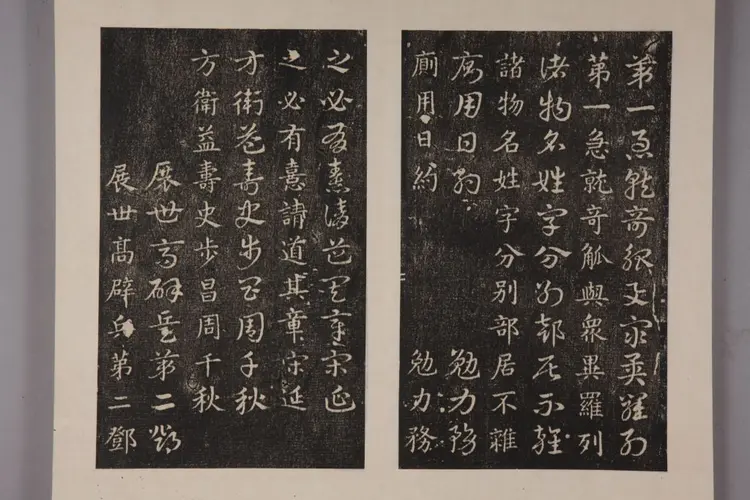 第一急就奇觚與眾異羅列
第一急就奇觚與衆異羅列
諸物名姓字分別部居不雜
諸物名姓字分別部居不雜
廁用日約 勉力務
廁用日約 勉力務
之必有憙請道其章宋延
之必有憙請道其章宋延
方衛益壽史步昌周千秋
方衛益壽史步昌周千秋
展世高辟兵第二鄧
展世髙辟兵第二鄧